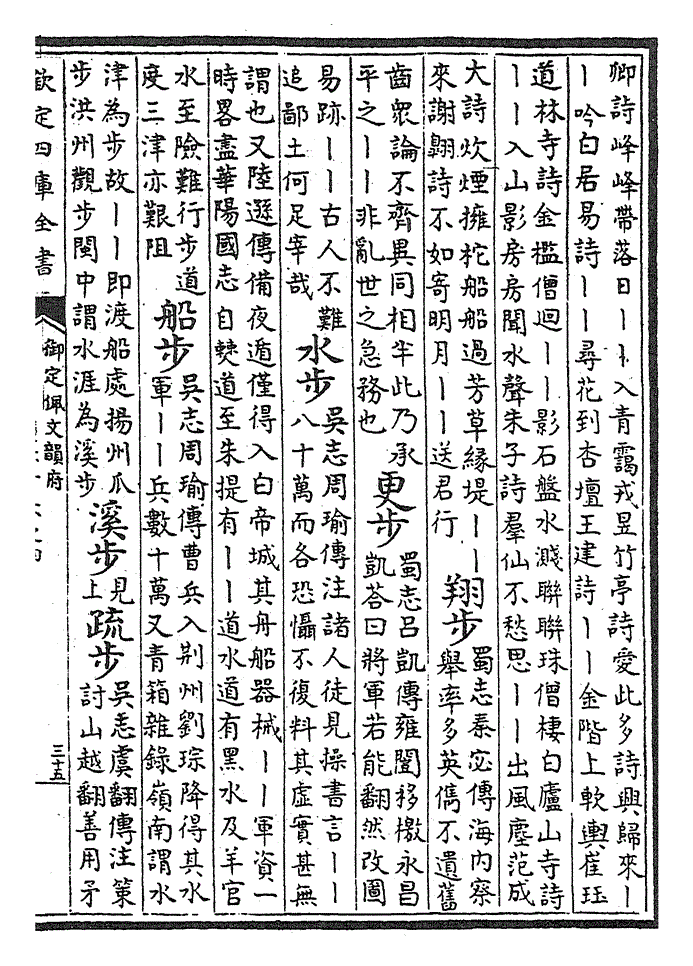 卿詩峰峰帶落日丨丨入青靄戎昱竹亭詩愛此多詩興歸來丨
丨吟白居易詩丨丨尋花到杏壇王建詩丨丨金階上軟輿崔珏
道林寺詩金檻僧迴丨丨影石盤水濺聯聯珠僧棲白廬山寺詩
丨丨入山影房房聞水聲朱子詩羣仙不愁思丨丨出風塵范成
大詩炊煙擁柁船船過芳草緣堤丨丨
來謝翺詩不如寄明月丨丨送君行
翔步
蜀志秦宓傳海内察
舉率多英儁不遺舊
齒衆論不齊異同相半此乃承
平之丨丨非亂世之急務也
更步
蜀志呂凱傳雍闓移檄永昌
凱荅曰將軍若能翻然改圖
易跡丨丨古人不難
追鄙土何足宰哉
水步
吳志周瑜傳注諸人徒見操書言丨丨
八十萬而各恐懾不復料其虛實甚無
謂也又陸遜傳備夜遁僅得入白帝城其舟船器械丨丨軍資一
時畧盡華陽國志自僰道至朱提有丨丨道水道有黑水及羊官
水至險難行步道
度三津亦艱阻
船步
吳志周瑜傳曹兵入荆州劉琮降得其水
軍丨丨兵數十萬又青箱雜錄嶺南謂水
津為步故丨丨即渡船處揚州爪
步洪州觀步閩中謂水涯為溪步
溪步
見
上
疏步
吳志虞翻傳注策
討山越翻善用矛
欽定四庫全書
御定佩文韻府
三十五